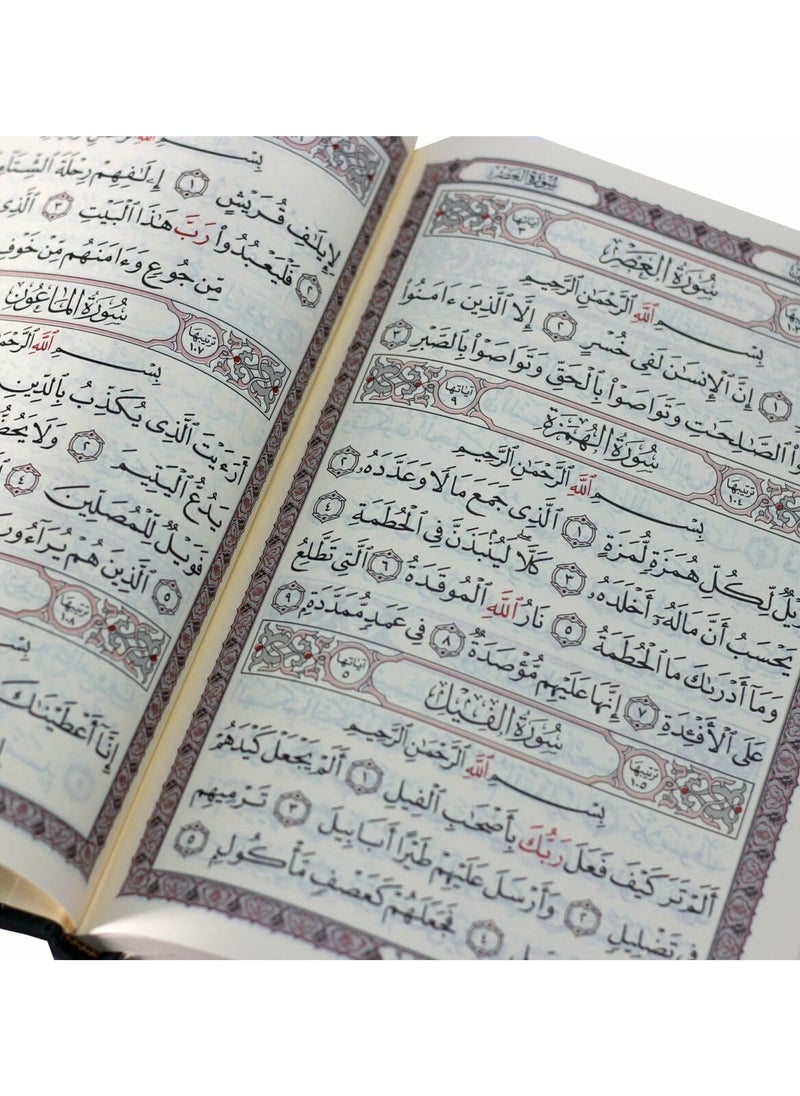 سُورَةُ العَصْرِ
سُورَةُ العَصْرِ آيَاتُهَا ٣
بِسْمِ ٱللَّهِ ٱلرَّحْمَٰنِ ٱلرَّحِيمِ
١ إِنَّ ٱلْإِنسَٰنَ لَفِي خُسْرٍ ٢ إِلَّا ٱلَّذِينَ ءَامَنُوا۟
ٱلصَّٰلِحَٰتِ وَتَوَاصَوْا۟ بِٱلْحَقِّ وَتَوَاصَوْا۟ بِٱلصَّبْرِ ٣
تَرْتِيبُهَا ١٠٤ سُورَةُ الهُمَزَةِ آيَاتُهَا ٩
بِسْمِ ٱللَّهِ ٱلرَّحْمَٰنِ ٱلرَّحِيمِ
لِّكُلِّ هُمَزَةٍ لُّمَزَةٍ ١ ٱلَّذِي جَمَعَ مَالًا وَعَدَّدَهُۥ ٢
يَحْسَبُ أَنَّ مَالَهُۥٓ أَخْلَدَهُۥ ٣ كَلَّا ۖ لَيُنۢبَذَنَّ فِي ٱلْحُطَمَةِ ٤
وَمَآ أَدْرَىٰكَ مَا ٱلْحُطَمَةُ ٥ نَارُ ٱللَّهِ ٱلْمُوقَدَةُ ٦ ٱلَّتِي تَطَّلِعُ
عَلَى ٱلْأَفْـِٔدَةِ ٧ إِنَّهَا عَلَيْهِم مُّؤْصَدَةٌ ٨ فِي عَمَدٍ مُّمَدَّدَةٍۭ ٩
تَرْتِيبُهَا ١٠٥ سُورَةُ الفِيلِ آيَاتُهَا ٥
بِسْمِ ٱللَّهِ ٱلرَّحْمَٰنِ ٱلرَّحِيمِ
أَلَمْ تَرَ كَيْفَ فَعَلَ رَبُّكَ بِأَصْحَٰبِ ٱلْفِيلِ ١ أَلَمْ يَجْعَلْ كَيْدَهُمْ
فِي تَضْلِيلٍ ٢ وَأَرْسَلَ عَلَيْهِمْ طَيْرًا أَبَابِيلَ ٣ تَرْمِيهِم
٤ فَجَعَلَهُمْ كَعَصْفٍ مَّأْكُولٍۭ ٥
بِسْمِ ٱللَّهِ
لِإِيلَٰفِ قُرَيْشٍ ١ إِۦلَٰفِهِمْ رِحْلَةَ ٱلشِّتَآءِ
٢ فَلْيَعْبُدُوا۟ رَبَّ هَٰذَا ٱلْبَيْتِ ٣ ٱلَّذِيٓ
مِّن جُوعٍ وَءَامَنَهُم مِّنْ خَوْفٍۭ ٤
تَرْتِيبُهَا ١٠٧ سُورَةُ المَاعُونِ
بِسْمِ ٱللَّهِ
أَرَءَيْتَ ٱلَّذِي يُكَذِّبُ بِٱلدِّينِ
يَدُعُّ ٱلْيَتِيمَ ٢ وَلَا يَحُضُّ
فَوَيْلٌ لِّلْمُصَلِّينَ ٤
ٱلَّذِينَ هُمْ يُرَآءُونَ ٥
تَرْتِيبُهَا ١٠٨
بِسْمِ
إِنَّآ أَعْطَيْنَٰكَ